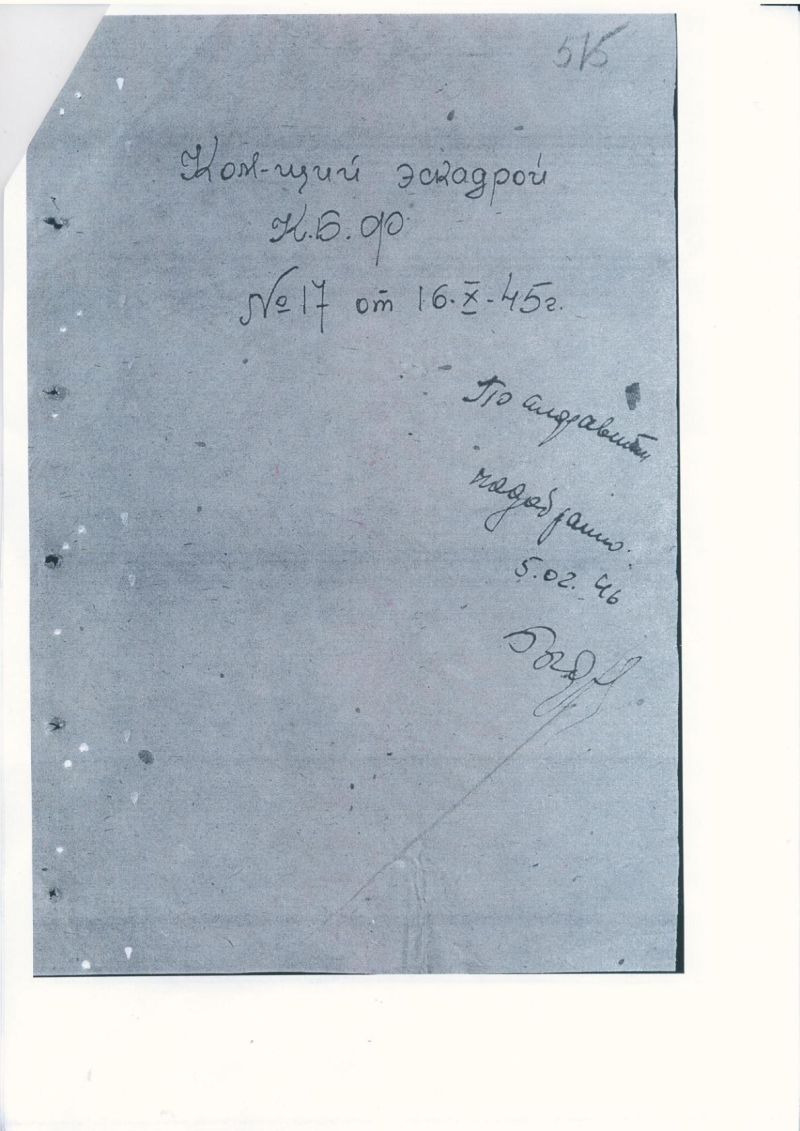 515
Ком-щий эскадрой
К.Б.Ф
№17 от 16.X-45г.
По алфавиту
подобрано.
5.02.46